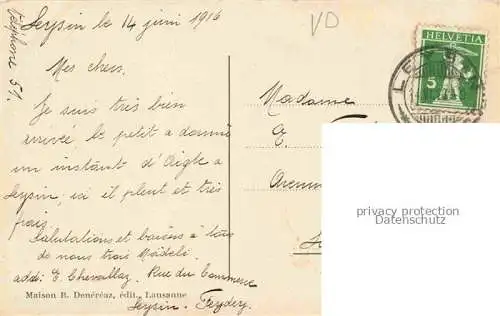 Leysin le 14 juin 1916
Mes chers.
Je suis très bien
arrivée le petit a dormi
un instant d'Aigle à
Leysin; ici il pleut et très
frais.
Salutations et baisers à tous
de nous trois Mädeli
add: E. Chevallaz, Rue du Commerce
Leysin - Feydey.
téléphone 51.
Maison R. Denéréaz, édit., Lausanne
VD
Madame
E.
Avenue
HELVETIA
5
LEYSIN
privacy protection
Datenschutz